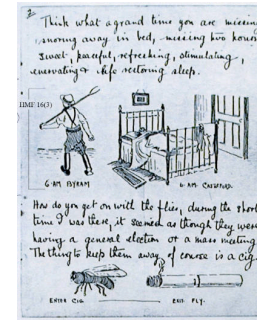 2
Think what a grand time you are missing
snoring away in bed, missing two hours
sweet, peaceful, refreshing, stimulating,
enervating & life restoring sleep.
HMF 16(3)
6 AM BYRAM
6 AM. CASTLEFORD.
How do you get on with the flies, during the short
time I was there, it seemed as though they were
having a general election or a mass meeting
The thing to keep them away of course is a cig.
ENTER CIG.
EXIT FLY.